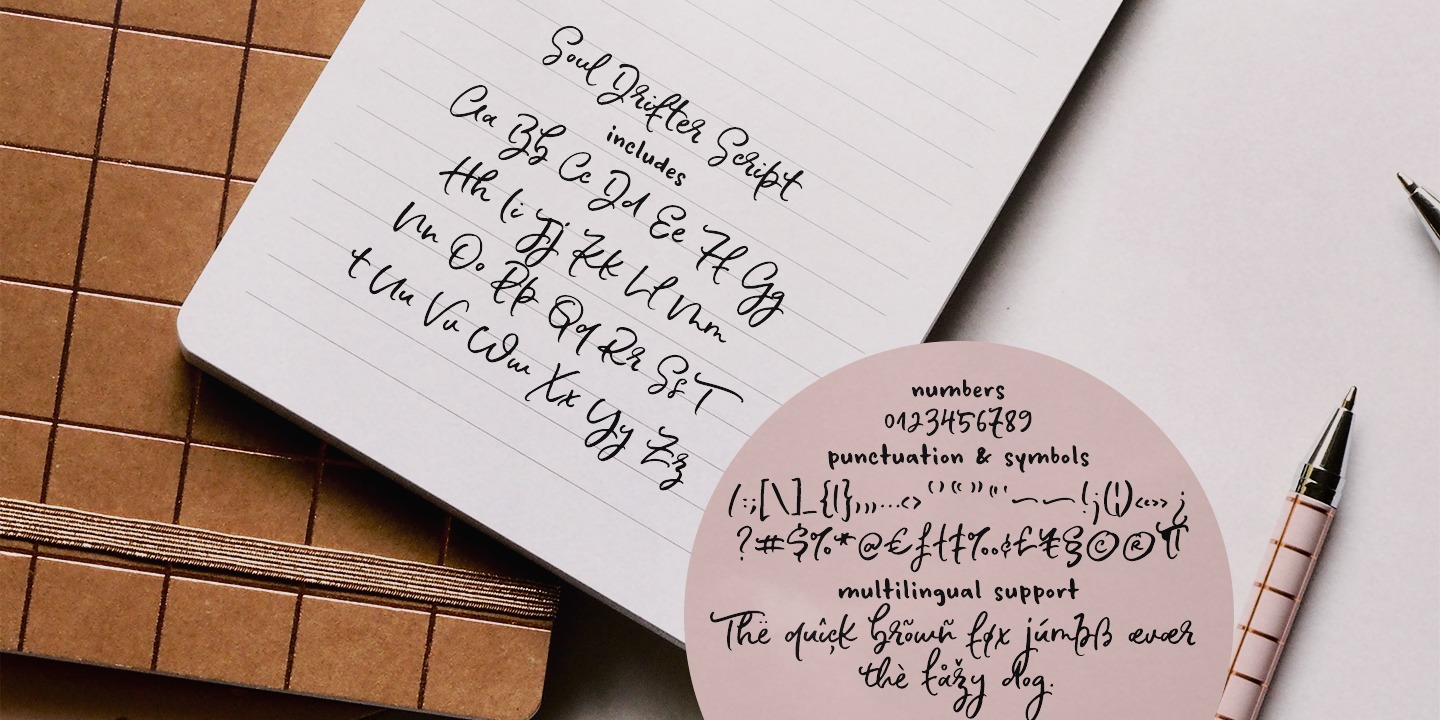 Soul Drifter Script
includes
Aa Bb Cc Dd Ee Ff Gg
Hh Ii Jj Kk Ll Mm
Nn Oo Pp Qq Rr Ss T
t Uu Vv Ww Xx Yy Zz
numbers
0123456789
punctuation & symbols
/:;[\]_{|},,,...‹›‘’“”"'–—!¡(!)«»¿
?#$%*@€ƒ†‡‰¢£¥§©®¶
multilingual support
Thë quîçk brõwñ føx júmßß ævœr
thè łåžy dog.